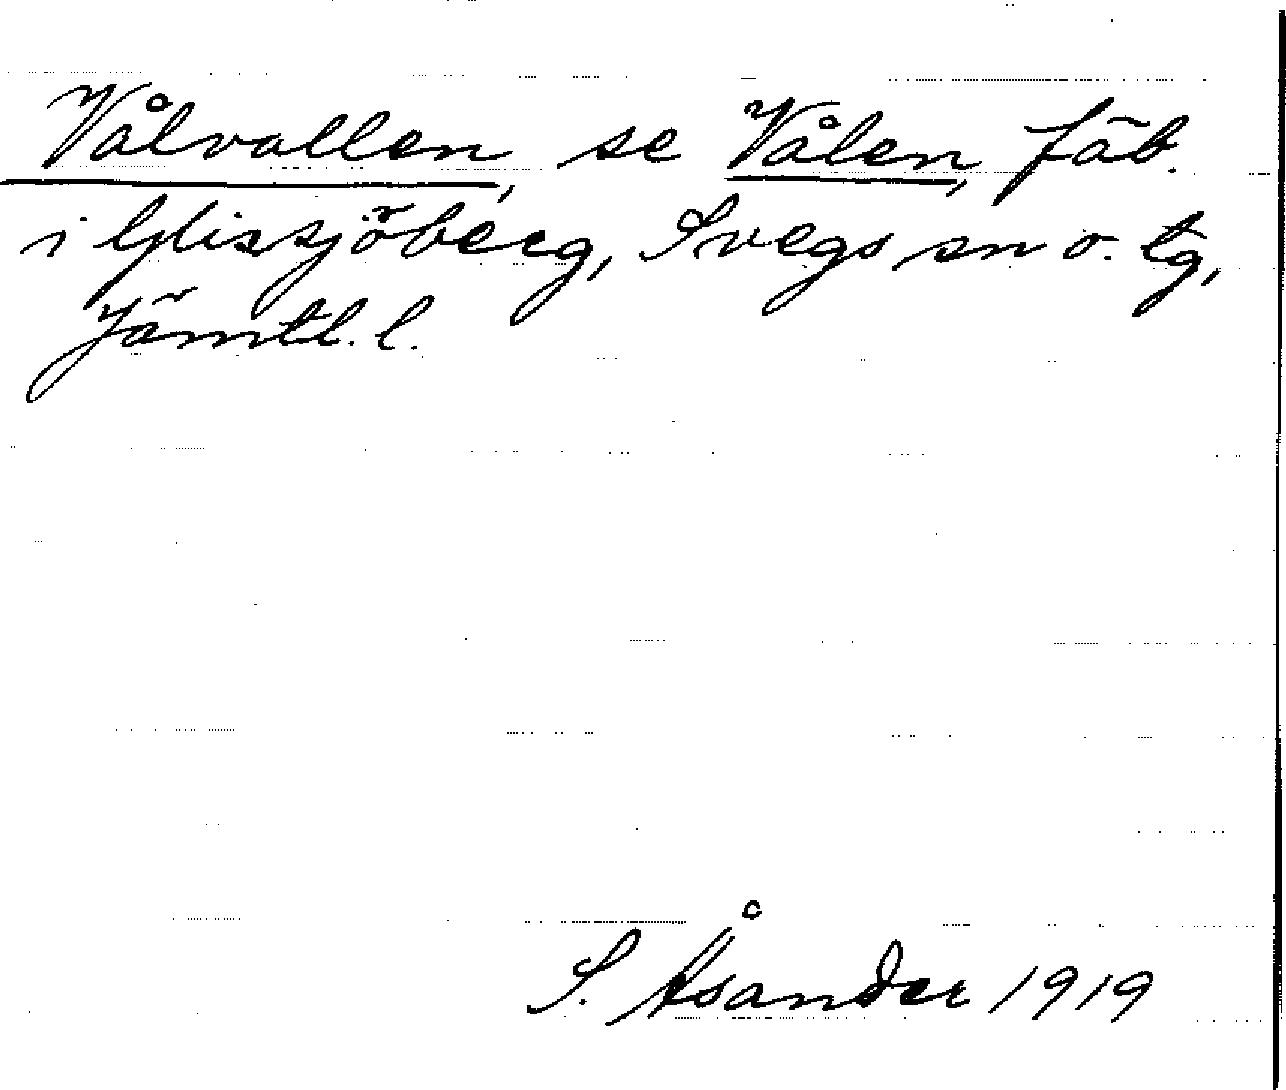 Vålvallen, se Vålen, fäb.
i Glissjöberg, Svegs sn o. tg,
Jämtl. l.
S. Åsander 1919